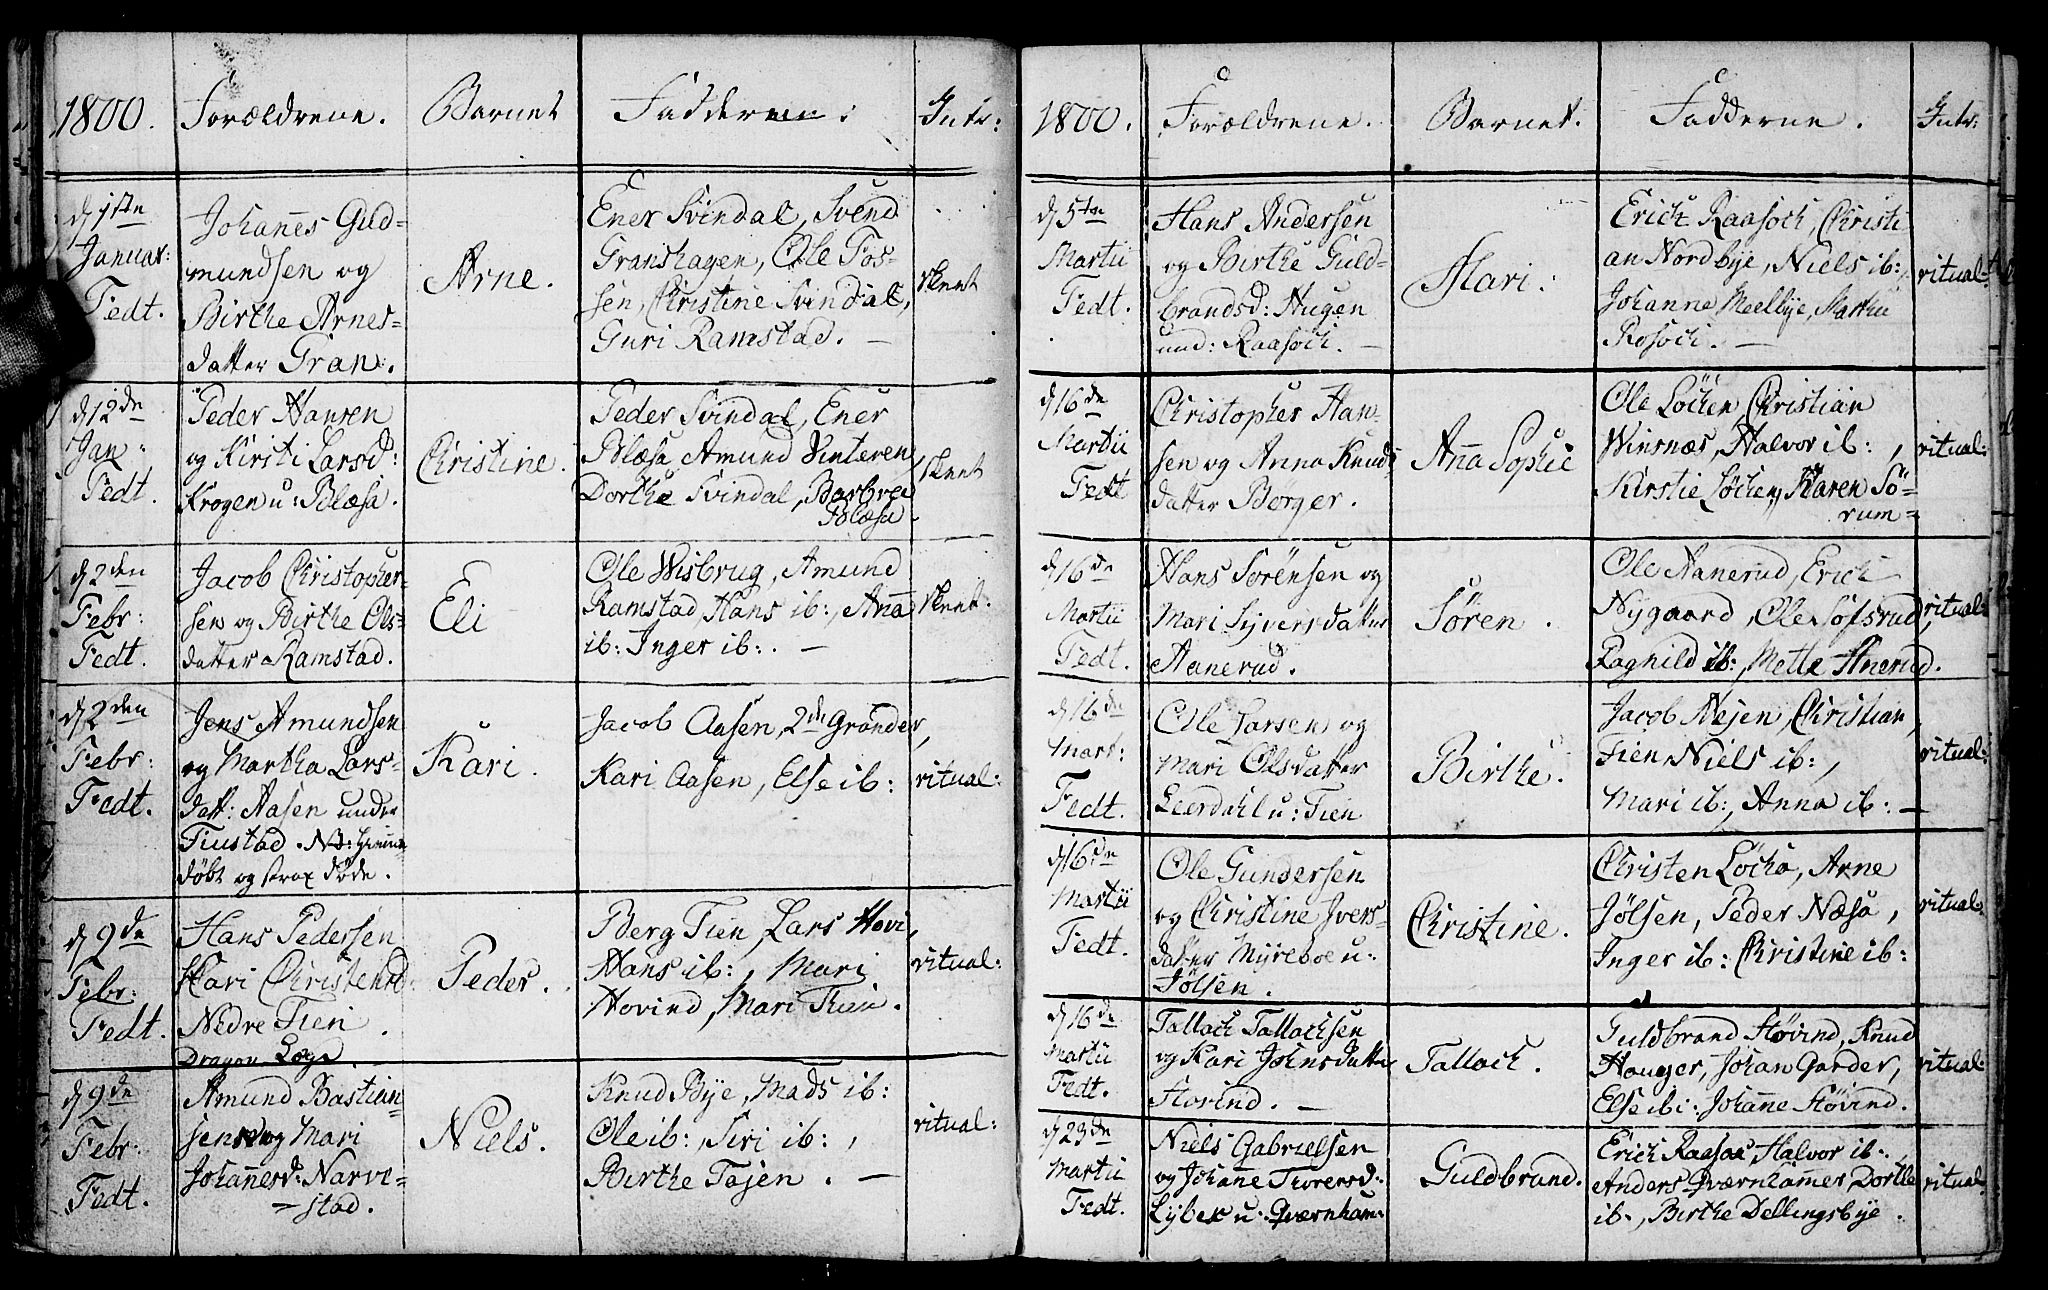 1800. Forældrene. Barnet Fadderne: Intr:
d 1ste
Januar:
Fedt.
Johannes Gud=
mundsen og
Birthe Arnes=
datter Gran:.
Arne.
Ener Svindal, Svend
Granshagen, Ole Fos=
sen, Christine Svindal,
Guri Ramstad. —
skeet
d 12de
Jan:
Fedt.
Peder Hansen
og Kirsti Larsd:
Krogen u: Blæsa.
Christine.
Peder Svindal, Ener
Blæsa, Amund Vinteren,
Dorthe Svindal, Barbroe
Blæsa.
skeet
d 2den
Febr:
Fedt.
Jacob Christopher=
sen og Birthe Ols=
datter Ramstad.
Eli
Ole Wisbrug, Amund
Ramstad, Hans ib:, Anna
ib: Inger ib:. —
skeet:
d 2den
Febr:
Fedt.
Jens Amundsen
og Martha Lars=
datt: Aasen under
Fiustad. NB: hiemme
döbt og strax döde.
Kari.
Jacob Aasen, 2de Grander,
Kari Aasen, Else ib:
ritual:
d 9de
Febr:
Fedt.
Hans Pedersen
Kari Christensd:
Nedre Fien.
Dragon Loge
Peder.
Berg Fien, Lars Hovi,
Hans ib:, Mari
Hovind, Mari Fien.
ritual:
d 9de
Febr:
Fedt.
Amund Bastian=
sen og Mari
Johannesd: Narve=
=stad.
Niels.
Knud Bÿe, Mads ib:
Ole ib:, Siri ib:,
Birthe Tojen. —
ritual:
1800. Forældrene. Barnet. Fadderne. Intr:
d 5te
Martii
Fedt.
Hans Andersen
og Birthe Guld=
brandsd: Hugen
und: Raasoch. —
Hari.
Erich Raasoch, Christi
an Nordbÿe, Niels ib:,
Johanne Meelbÿe, Marthe
Rosoch. —
ritual:
d 16de
Martii
Fedt
Christopher Han=
sen og Anna Knuds
datter Börger.
Aña Sophie
Ole Löchen, Christian
Winsnæs, Halvor ib:,
Kirstie Löchen, Karen Sö=
rum=
ritual:
d 16de
Martii
Fedt.
Hans Sörensen og
Mari Sÿversdatter
Hanerud.
Sören.
Ole Hanerud, Erich
Nÿgaard, Ole Sofsrud,
Ragnild ib:, Mette Hnerud.
ritual:
d 16de
Mart:
Fedt.
Ole Larsen og
Mari Olsdatter
Leerdahl u: Fien
Birthe.
Jacob Nejen, Christian,
Fien Niels ib:,
Mari ib:, Anna ib: —
ritual:
d 16de
Martii
Fedt.
Ole Gundersen
og Christine Ivers=
datter Mÿreboe u:
Jölsen.
Christine.
Christen Löcha, Arne
Jölsen, Peder Næsa,
Inger ib: Christine ib:
ritual:
d 16de
Martii
Fedt.
Tallach Tallachsen
og Kari Johnsdatter
Hovind. —
Tallach.
Guldbrand Hövind, Knud
Hauger, Johan Garder,
Else ib: Johañe Hövind.
ritual:
d 23de
Martii
Fedt.
Niels Gabrielsen
og Johañe Thorersd:
Lÿbek u: Qværnham:
Guldbrand.
Erich Raasac, Halvor ib:,
Anders Qværnhamer, Dorthe
ib:, Birthe Dellingsbÿe.
ritual: